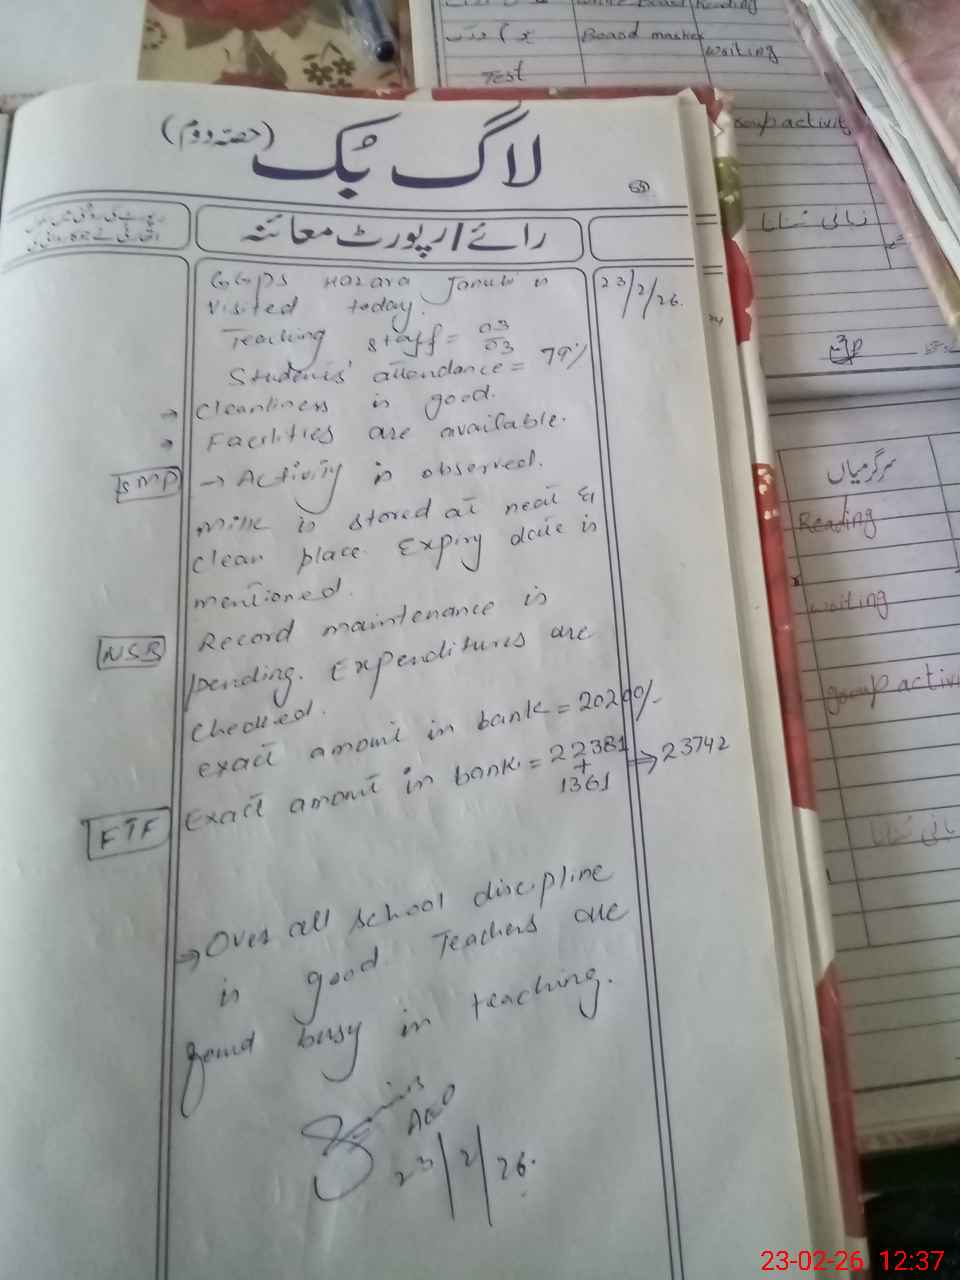 لاگ بک (حصہ دوم)
رائے / رپورٹ معائنہ
GGPS Hazara Janubi is 23/2/26.
visited today.
Teaching staff = 03/03
Students' attendance = 79%
→ Cleanliness is good.
→ Facilities are available.
SMP → Activity is observed.
Milk is stored at neat &
clean place. Expiry date is
mentioned.
NSB Record maintenance is
pending. Expenditures are
checked.
exact amount in bank = 20200/-
FTF Exact amount in bank = 22381 + 1361 ⇒ 23742
→ Over all school discipline
is good. Teachers are
found busy in teaching.
AEO
23/2/26.
White Board Reading
Board marker
waiting
Test
Group activity
زبانی سننا
سرگرمیاں
Reading
waiting
group activi
23-02-26 12:37